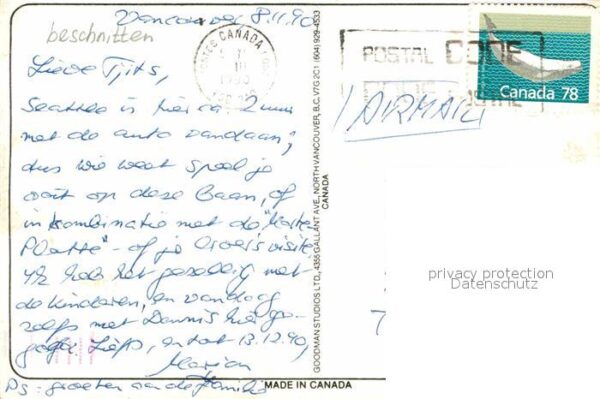 Vancouver 8.11.90
beschnitten
Lieve Tjits,
Seattle is hier ca 2 uur
met de auto vandaan,
dus wie weet speel je
ooit op deze Baan, of
in kombinatie met de
Platte" - of jo visite
heb het gezellig met
de kinderen, en vandaag
zelfs met Dennis hier ge-
Liefs, en tot 13.12.90,
Marjan
Ps: groeten van de familie
CANADA
POSTAL CODE
AIRMAIL
Canada 78
GOODMAN STUDIOS LTD., 4355 GALLANT AVE., NORTH VANCOUVER, B.C. V7G 2C1 (604) 929-4533
CANADA
privacy protection
Datenschutz
MADE IN CANADA